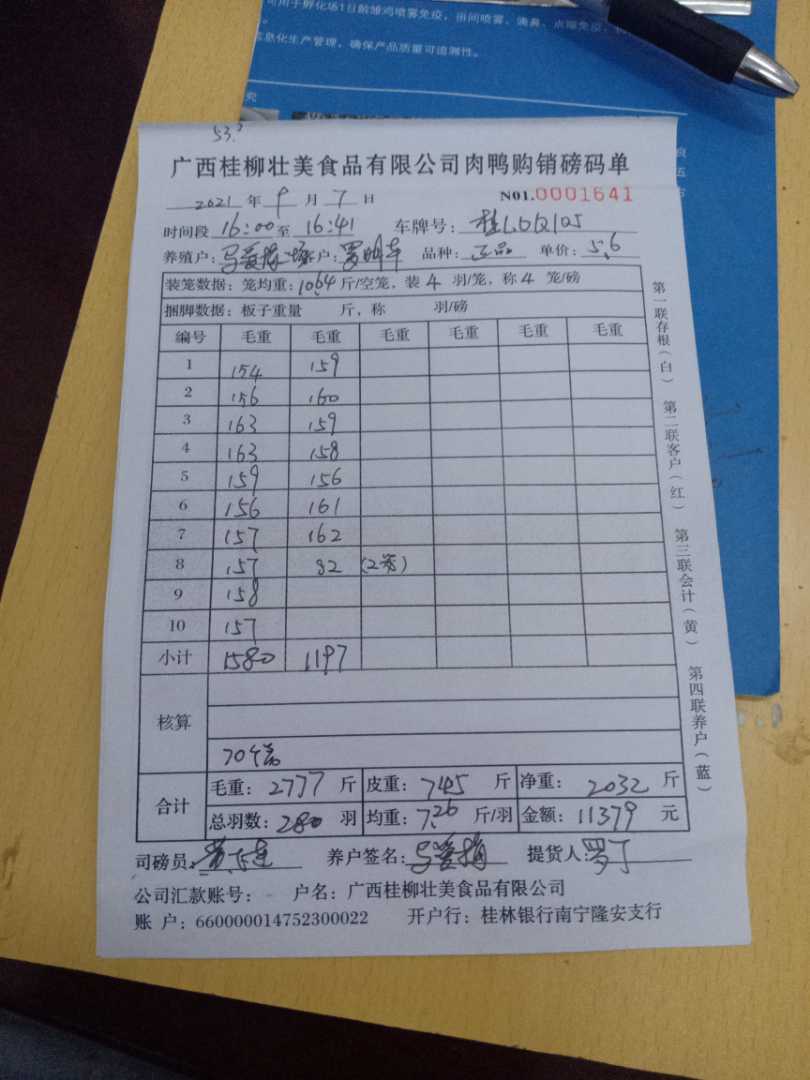 司用于孵化场1日龄雏鸡喷雾免疫，浴间喷雾、滴鼻、点眼免疫，
息化生产管理，确保产品质量可追溯性。
究
53.²
广西桂柳壮美食品有限公司肉鸭购销磅码单
2021 年 9 月 7 日 N01.0001641
时间段 16:00 至 16:41 车牌号：桂
养殖户： 户： 品种：正品 单价：5.6
装笼数据：笼均重：10.64 斤/空笼，装 4 羽/笼，称 4 笼/磅
捆脚数据：板子重量 斤，称 羽/磅
编号 毛重 毛重 毛重 毛重 毛重 毛重
1 154 159
2 156 160
3 163 159
4 163 158
5 159 156
6 156 161
7 157 162
8 157 82 (2笼)
9 158
10 157
小计 1580 1197
核算
70个笼
合计 毛重：2777 斤 皮重：745 斤 净重：2032 斤
总羽数：280 羽 均重：7.26 斤/羽 金额：11379 元
司磅员： 养户签名： 提货人：罗丁
公司汇款账号： 户名：广西桂柳壮美食品有限公司
账 户：660000014752300022 开户行：桂林银行南宁隆安支行
第一联存根（白）
第二联客户（红）
第三联会计（黄）
第四联养户（蓝）